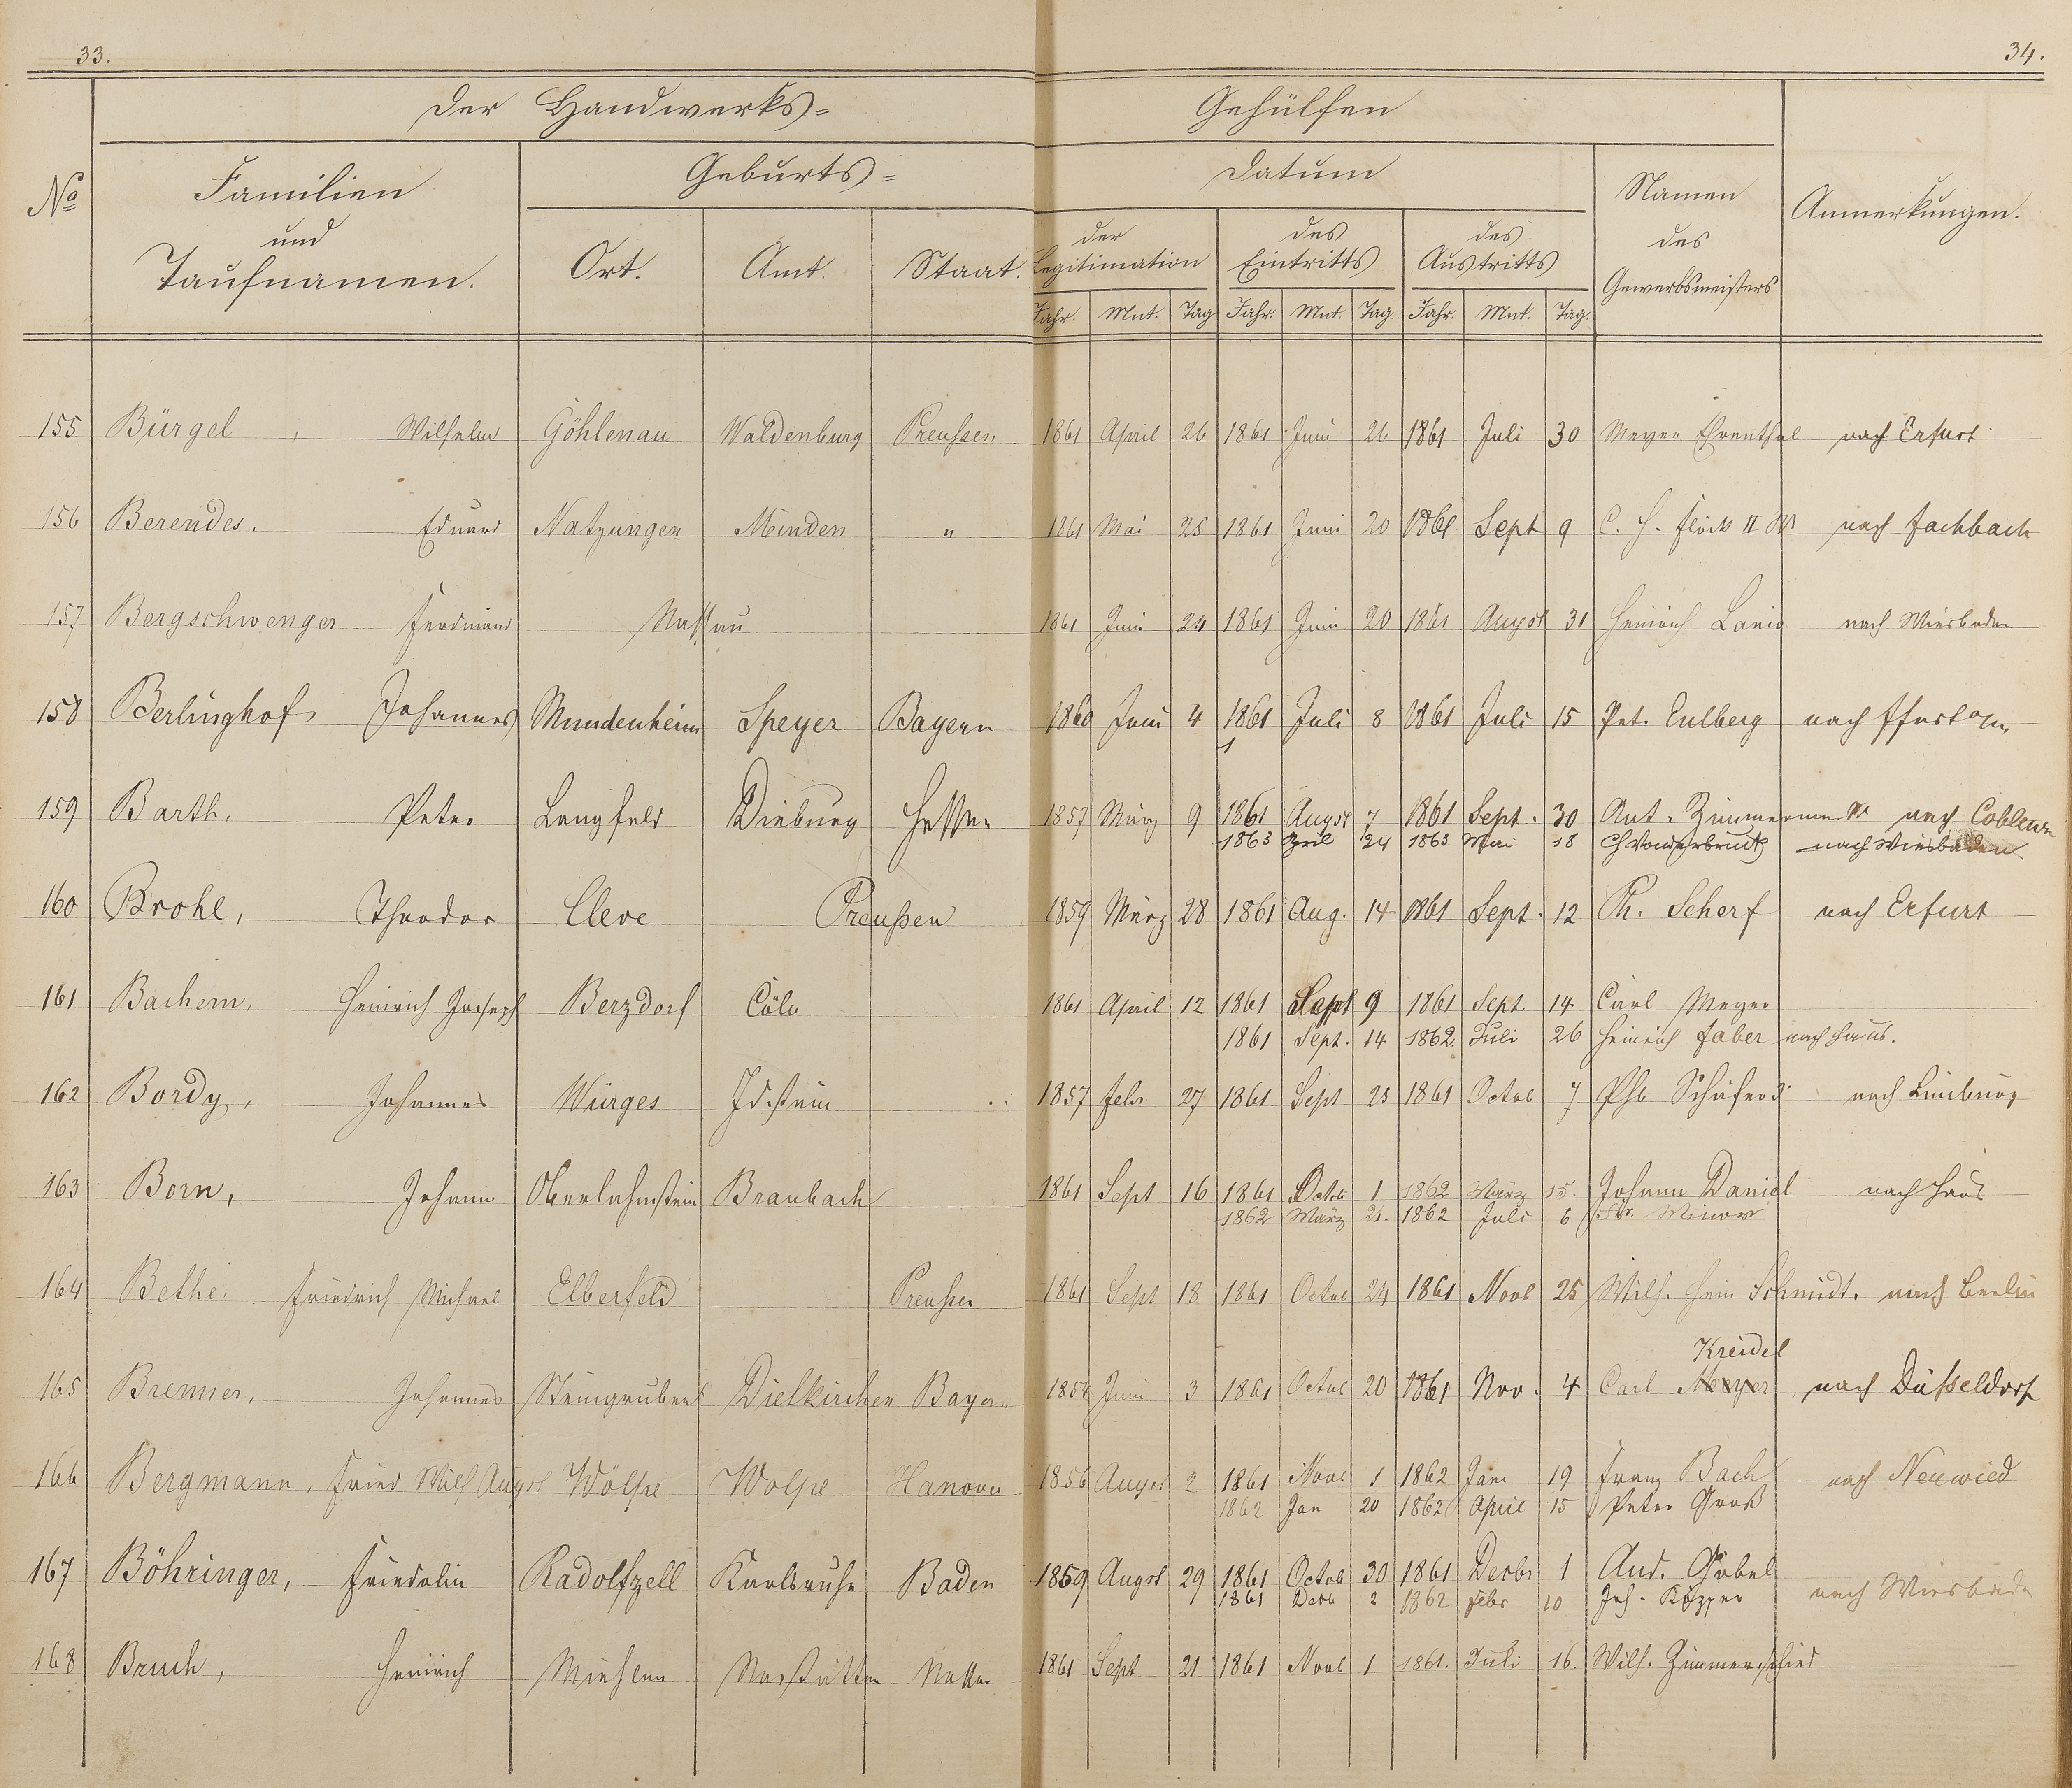 33.
34.
Der Handwerks= Gehülfen
No Familien und Taufnamen.
Geburts= Datum
Ort. Amt. Staat.
der Legitimation
des Eintritts
des Austritts
Namen des Gewerbsmeisters
Anmerkungen.
Jahr. Mnt. Tag Jahr. Mnt. Tag. Jahr. Mnt. Tag.
155 Bürgel, Wilhelm Göhlenau Waldenburg Preußen 1861 April 26 1861 Juni 26 1861 Juli 30 Meyer Ehrenthal nach Erfurt
156 Berendes. Eduard Natzungen Minden " 1861 Mai 25 1861 Juni 20 1861 Sept 9 C. H. Flöck II W nach Fachbach
157 Bergschwenger Ferdinand Nassau 1861 Juni 24 1861 Juni 20 1861 August 31 Heinrich Lanio nach Wiesbaden
158 Berlinghof Johannes Mundenheim Speyer Bayern 1860 Juni 4 1861 Juli 8 1861 Juli 15 Pet. Eulberg nach Ffurt a/m
159 Barth, Peter Lengfeld Dieburg Hessen 1857 März 9 1861 August 7 1861 Sept. 30 Ant. Zimmermann nach Coblenz
1863 April 24 1863 Mai 18 nach Wiesbaden
160 Brohl, Theodor Cleve Preußen 1859 März 28 1861 Aug. 14 1861 Sept. 12 Ph. Scherf nach Erfurt
161 Bachem, Heinrich Joseph Berzdorf Cöln 1861 April 12 1861 Sept 9 1861 Sept. 14. Carl Meyer
1861 Sept. 14 1862. Juli 26 Heinrich Faber nach Haus.
162 Bordy, Johannes Würges Idstein 1857 Febr 27 1861 Sept 25 1861 Octob 7 Phl Schäfer nach Limburg
163 Born, Johann Oberlahnstein Braubach 1861 Sept 16 1861 Octob 1 1862 März 15. Johann Daniel nach Haus
1862 März 21. 1862 Juli 6 Fr. Minor
164 Bethe, Friedrich Michael Elberfeld Preußen 1861 Sept 18 1861 Octob 24 1861 Novb 25 Wilh. Hein Schmidt. nach Berlin
Kreidel
165 Brenner, Johannes Steingruben Dielkirchen Bayern 1854 Juni 3 1861 Octob 20 1861 Nov. 4 Carl Meyer nach Düsseldorf
166 Bergmann, Fried Wilh August Wölpe Wölpe Hanover 1856 August 2 1861 Novb 1 1862 Jan 19 Franz Bach nach Neuwied
1862 Jan 20 1862 April 15 Peter Groß
167 Böhringer, Friedolin Radolfzell Karlsruhe Baden 1859 August 29 1861 Octob 30 1861 Decbr 1 And. Göbel
1861 Decb 2 1862 Febr 10 Joh. Küpper nach Wiesbaden
168 Bruch, Heinrich Miehlen Nastätten Nassau 1861 Sept 21 1861 Novb 1 1861. Juli 16. Wilh. Zimmerschied